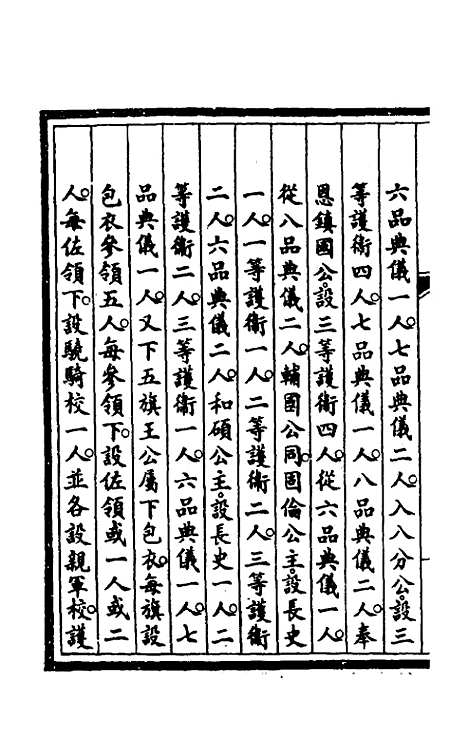 六品典儀一人。七品典儀二人。入八分公。設三
等護衛四人。七品典儀一人。八品典儀二人。奉
恩鎮國公。設三等護衛四人。從六品典儀一人。
從八品典儀二人。輔國公同。固倫公主。設長史
一人。一等護衛一人。二等護衛二人。三等護衛
二人。六品典儀二人。和碩公主。設長史一人。二
等護衛二人。三等護衛一人。六品典儀一人。七
品典儀一人。又下五旗王公屬下包衣。每旗設
包衣參領五人。每參領下。設佐領或一人或二
人。每佐領下。設驍騎校一人。並各設親軍校。護